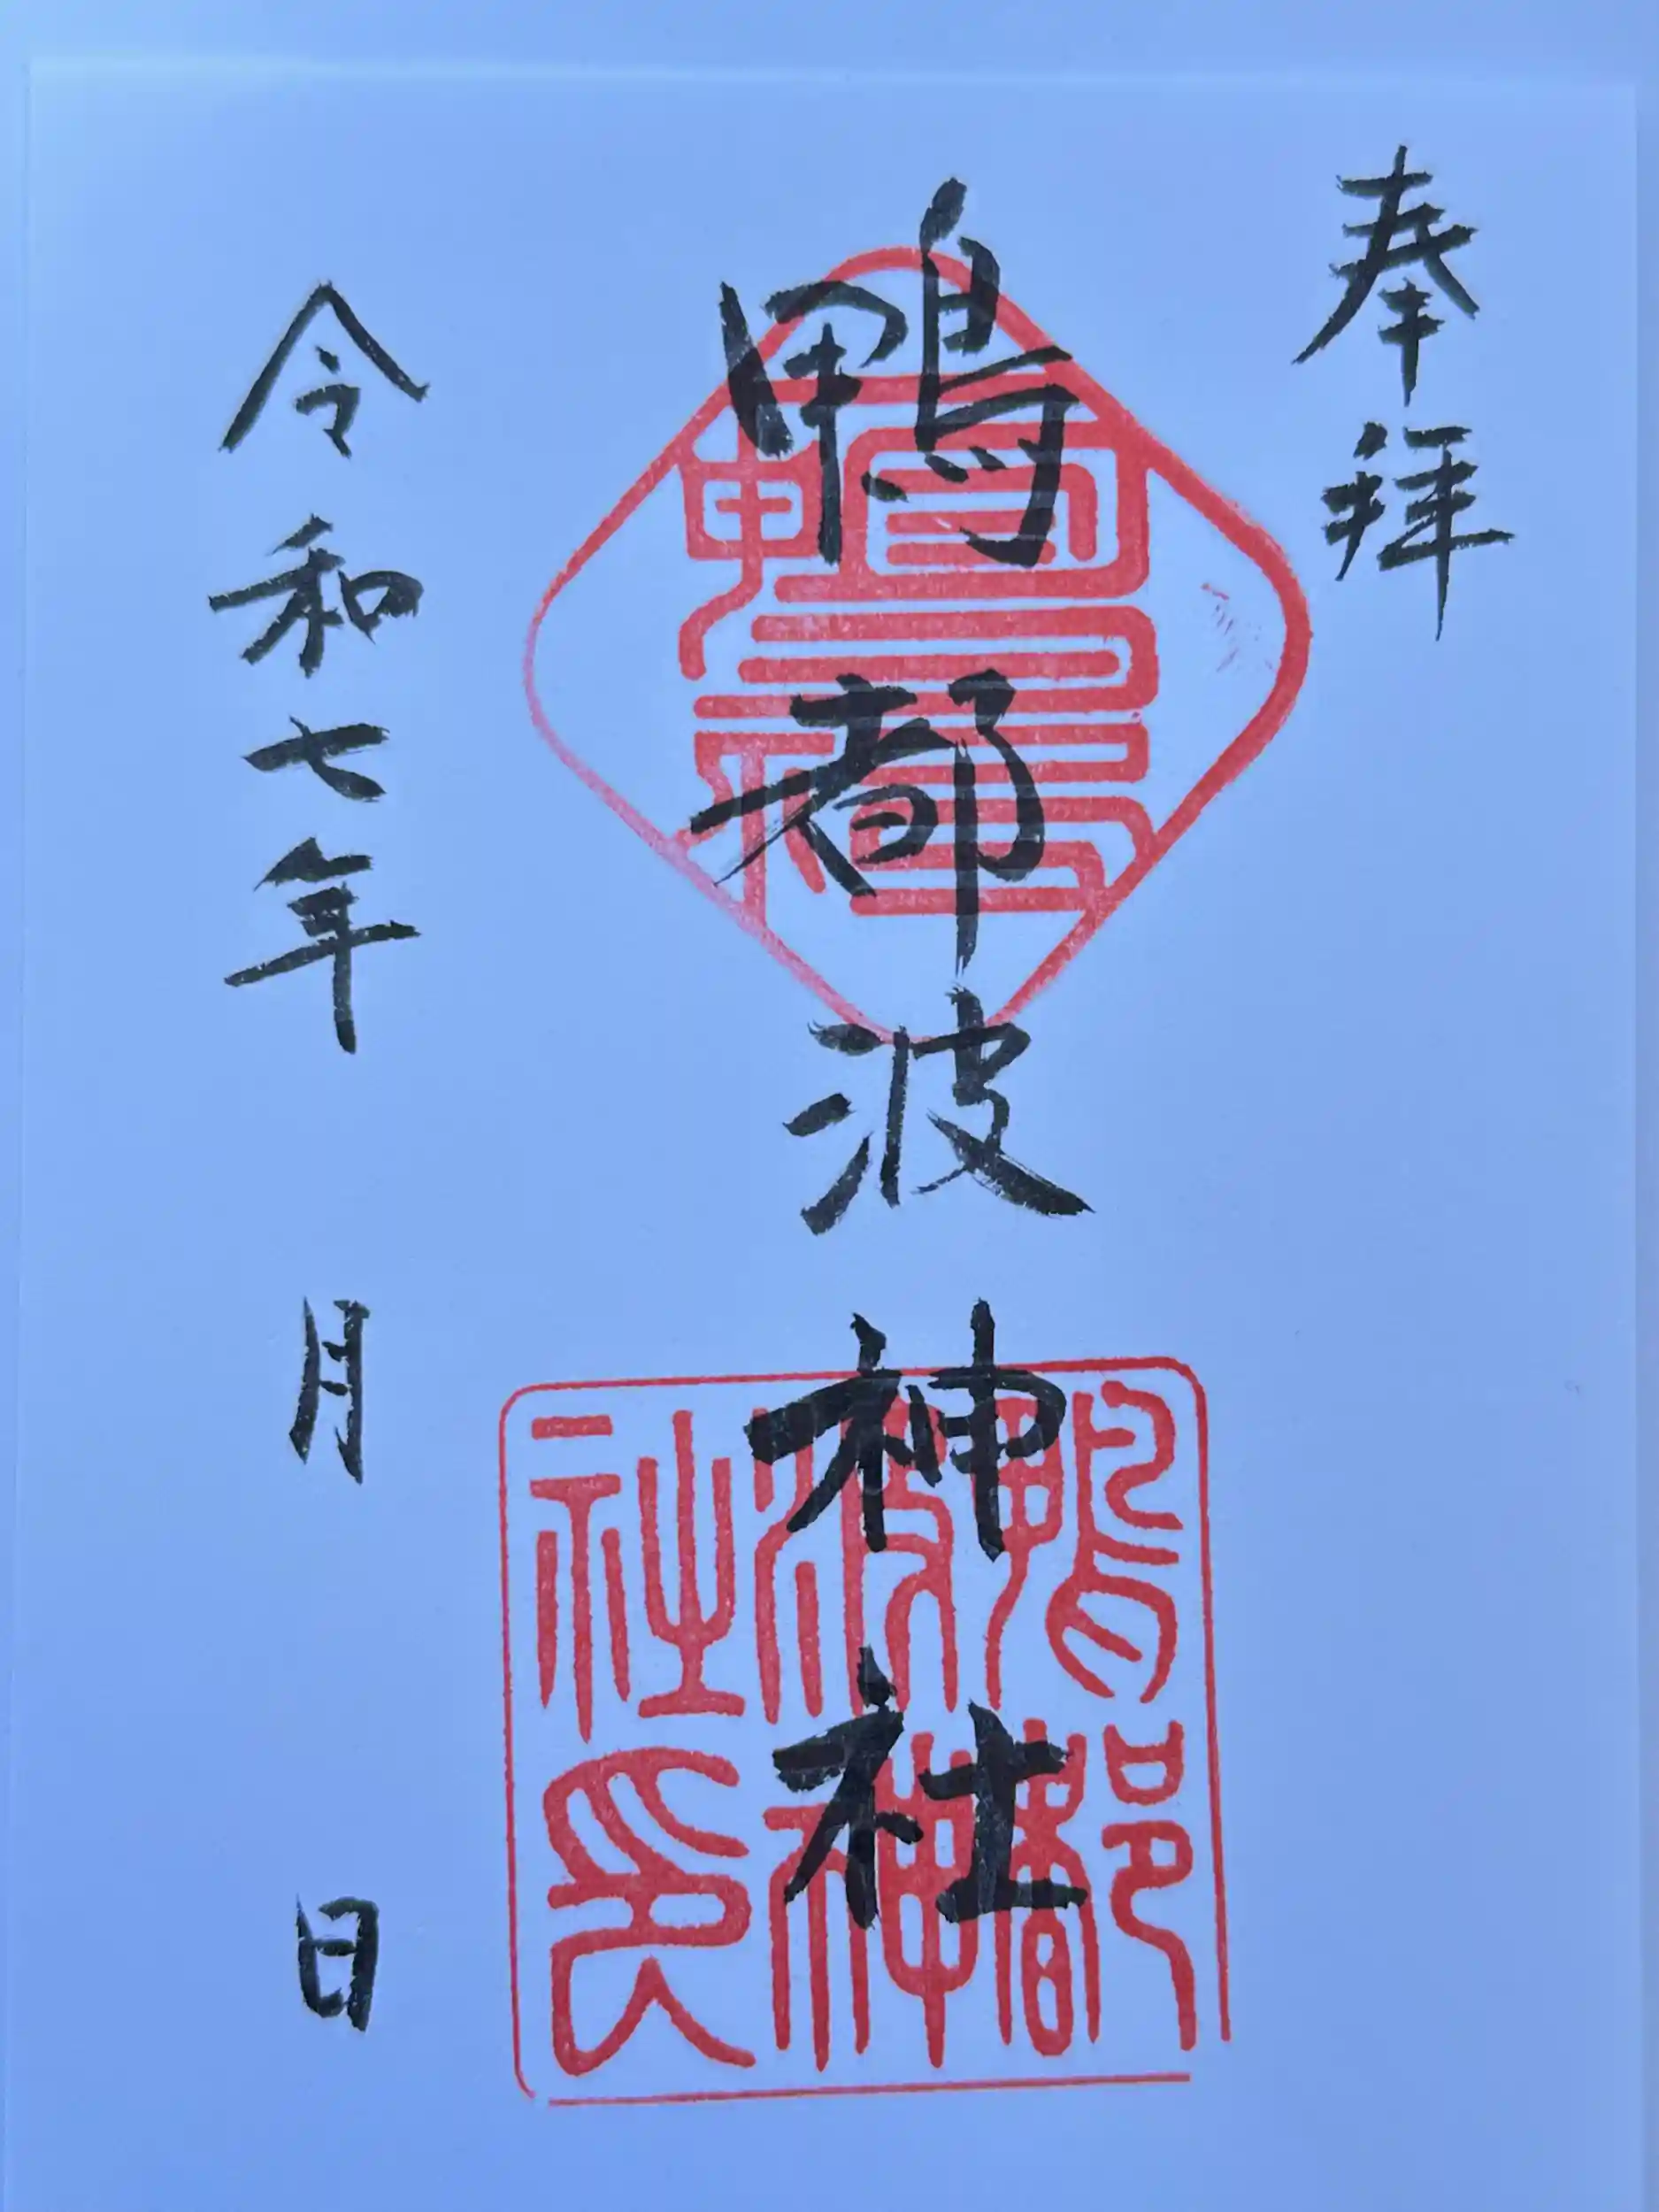 奉拝
鴨都波神社
鴨都波神社印
令和七年 月 日